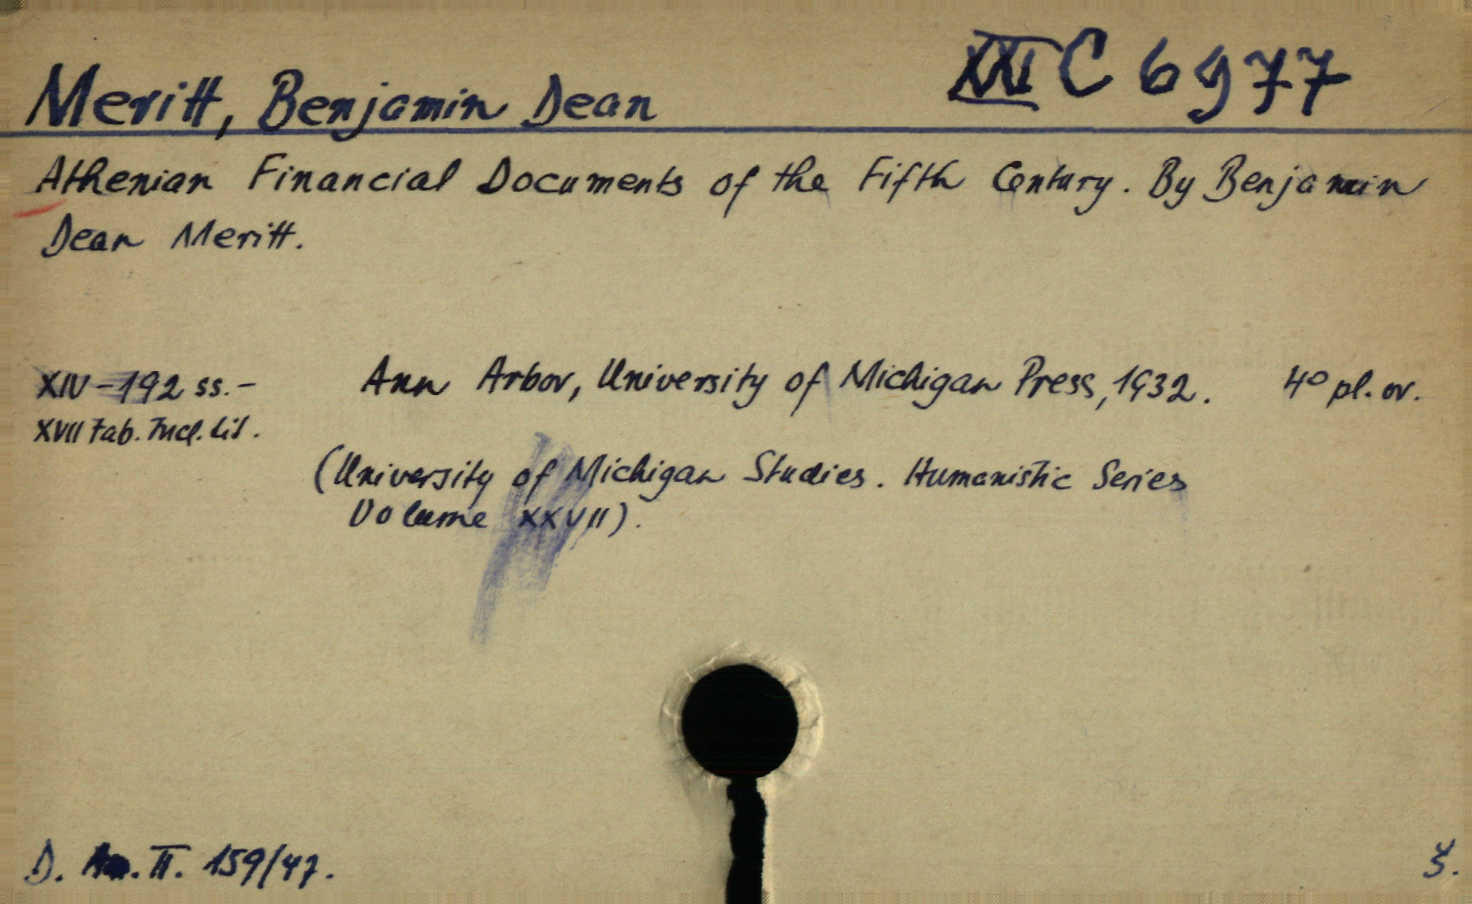 XXI C 6977
Meritt, Benjamin Dean
Athenian Financial Documents of the Fifth Century. By Benjamin
Dean Meritt.
XIV-192 ss.- Ann Arbor, University of Michigan Press, 1932. 4° pl. ov.
XVII Tab. Incl. Lit.
(University of Michigan Studies. Humanistic Series
Volume XXVII).
D. II. 159/47.